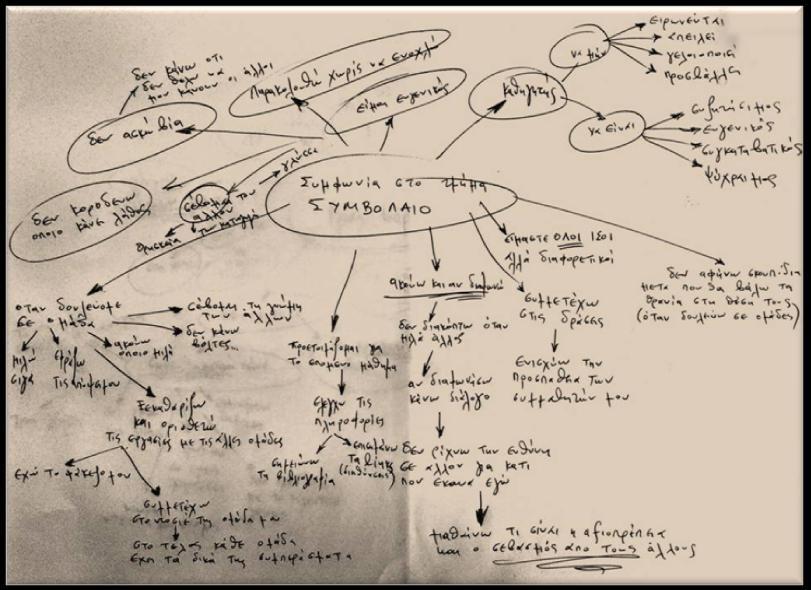 δεν κάνω ότι
δεν θέλω να
μου κάνουν οι άλλοι
Παρακολουθώ χωρίς να ενοχλώ
είμαι ευγενικός
καθηγητής
να μην
ειρωνεύεται
απειλεί
γελοιοποιεί
προσβάλλει
να είναι
συζητήσιμος
ευγενικός
συγκαταβατικός
ψύχραιμος
δεν ασκώ βία
δεν κοροϊδεύω
όποιο κάνει λάθος
σέβομαι του
άλλου
την καταγωγή
γλώσσα
θρησκεία
Συμφωνία στο τμήμα
ΣΥΜΒΟΛΑΙΟ
είμαστε ΟΛΟΙ ΙΣΟΙ
αλλά διαφορετικοί
δεν αφήνω σκουπίδια
μετά που θα βάλω τα
θρανία στη θέση τους
(όταν δουλεύω σε ομάδες)
όταν δουλεύουμε
σε ομάδα
μιλώ
σιγά
ακούω
όποιο μιλά
σέβομαι τη γνώμη
των άλλων
δεν κάνω
βόλτες...
Ξεκαθαρίζω
και οριοθετώ
τις εργασίες με τις άλλες ομάδες
έχω το φάκελο μου
συμμετέχω
στο τέλος κάθε ομάδα
έχει τα δικά της συμπεράσματα
προετοιμάζομαι για
το επόμενο μάθημα
ελέγχω τις
πληροφορίες
σημειώνω
τη βιβλιογραφία
ακούω και αν διαφωνώ
δεν διακόπτω όταν
μιλά άλλος
αν διαφωνήσω
κάνω διάλογο
δεν ρίχνω την ευθύνη
σε άλλον για κάτι
που έκανα εγώ
μαθαίνω τι είναι η αξιοπρέπεια
και ο σεβασμός από τους άλλους
συμμετέχω
στις δράσεις
Ενισχύω την
προσπάθεια των
συμμαθητών μου